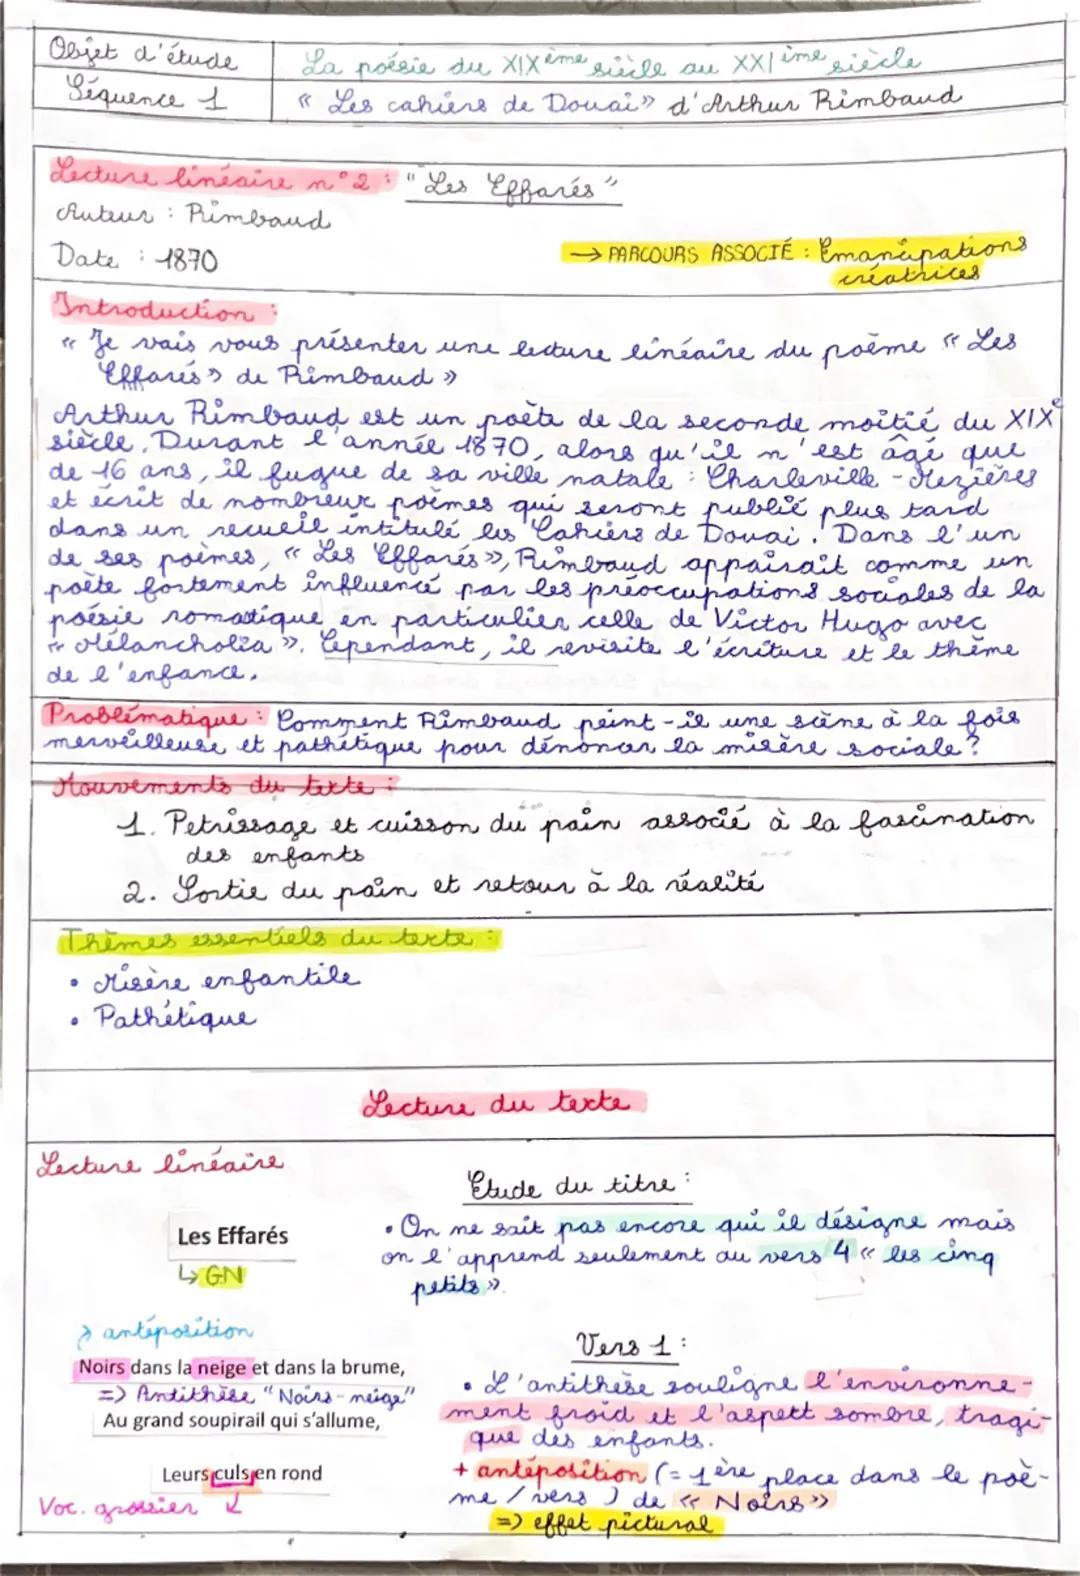 Objet d'étude
La poésie du XIXème siècle au XXIème siècle
Séquence 1
« Les cahiers de Douai» d'Arthur Rimbaud
Lecture linéaire n°2 : "Les Effarés"
Auteur : Rimbaud
Date : 1870
→ PARCOURS ASSOCIÉ : Emancipations
créatrices
Introduction :
« Je vais vous présenter une lecture linéaire du poème « Les
Effarés» de Rimbaud »
Arthur Rimbaud est un poète de la seconde moitié du XIXe
siècle. Durant l'année 1870, alors qu'il n'est âgé que
de 16 ans, il fugue de sa ville natale : Charleville-Mezières
et écrit de nombreux poèmes qui seront publié plus tard
dans un recueil intitulé les Cahiers de Douai. Dans l'un
de ses poèmes, « Les Effarés», Rimbaud apparait comme un
poète fortement influencé par les préoccupations sociales de la
poésie romantique en particulier celle de Victor Hugo avec
« Mélancholia ». Cependant, il revisite l'écriture et le thème
de l'enfance.
Problématique : Comment Rimbaud peint-il une scène à la fois
merveilleuse et pathétique pour dénoncer la misère sociale?
Mouvements du texte :
1. Petrissage et cuisson du pain associé à la fascination
des enfants
2. Sortie du pain et retour à la réalité
Thèmes essentiels du texte :
• Misère enfantile
• Pathétique
Lecture du texte
Lecture linéaire
Etude du titre :
Les Effarés
↳ GN
• On ne sait pas encore qui il désigne mais
on l'apprend seulement au vers 4 « les cinq
petits».
→ antéposition
Noirs dans la neige et dans la brume,
=> Antithèse "Noirs-neige"
Au grand soupirail qui s'allume,
Leurs culs en rond
Voc. grossier
Vers 1 :
• L'antithèse souligne l'environne-
ment froid et l'aspect sombre, tragi-
que des enfants.
+ antéposition (= 1ère place dans le poè-
me / vers ) de « Noirs»
=> effet pictural